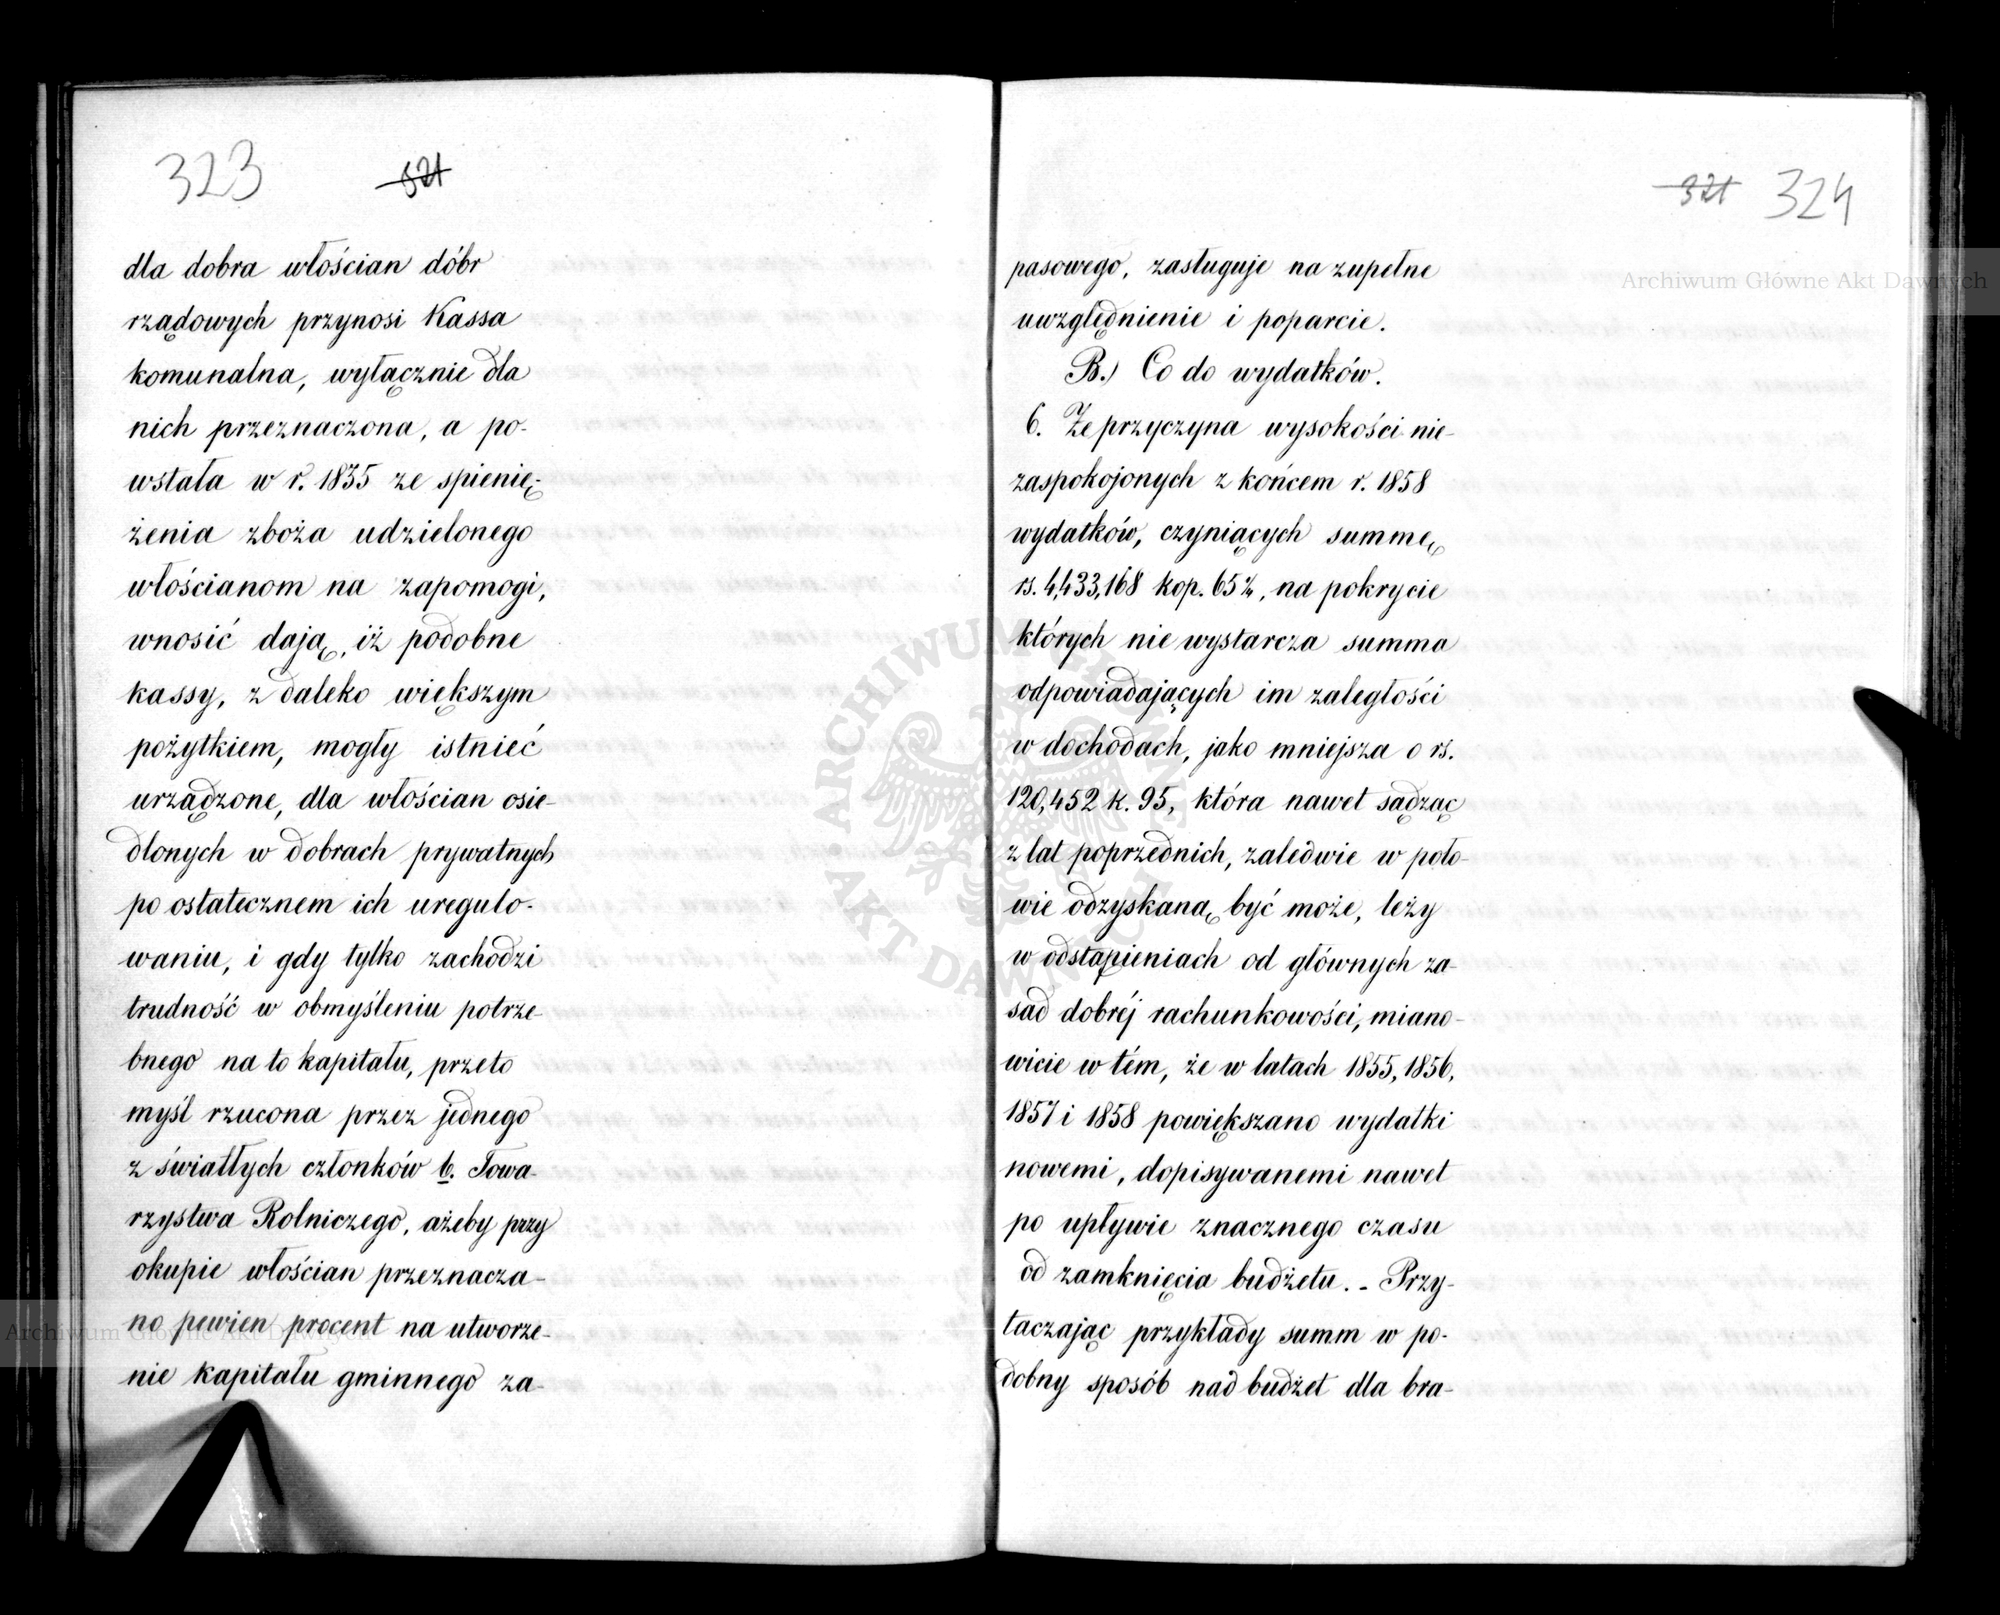 323 321
dla dobra włościan dóbr
rządowych przynosi Kassa
komunalna, wyłącznie dla
nich przeznaczona, a po-
wstała w r. 1835 ze spienię-
żenia zboża udzielonego
włościanom na zapomogi,
wnosić dają, iż podobne
kassy, z daleko większym
pożytkiem, mogły istnieć
urządzone, dla włościan osie-
dlonych w dobrach prywatnych
po ostatecznem ich uregulo-
waniu, i gdy tylko zachodzi
trudność w obmyśleniu potrze-
bnego na to kapitału, przeto
myśl rzucona przez jednego
z światłych członków b. Towa-
rzystwa Rolniczego, ażeby przy
okupie włościan przeznacza-
no pewien procent na utworze-
nie kapitału gminnego za-
321 324
pasowego, zasługuje na zupełne
uwzględnienie i poparcie.
B.) Co do wydatków.
6. Że przyczyna wysokości nie-
zaspokojonych z końcem r. 1858
wydatków, czyniących summę
rs. 4,433,168 kop. 65½, na pokrycie
których nie wystarcza summa
odpowiadających im zaległości
w dochodach, jako mniejsza o rs.
120,452 k. 95, która nawet sądząc
z lat poprzednich, zaledwie w poło-
wie odzyskaną być może, leży
w odstąpieniach od głównych za-
sad dobréj rachunkowości, miano-
wicie w tém, że w latach 1855, 1856,
1857 i 1858 powiększano wydatki
nowemi, dopisywanemi nawet
po upływie znacznego czasu
od zamknięcia budżetu. - Przy-
taczając przykłady summ w po-
dobny sposób nad budżet dla bra-
Archiwum Główne Akt Dawnych
Archiwum Główne Akt Dawnych
ARCHIWUM GŁÓWNE AKT DAWNYCH